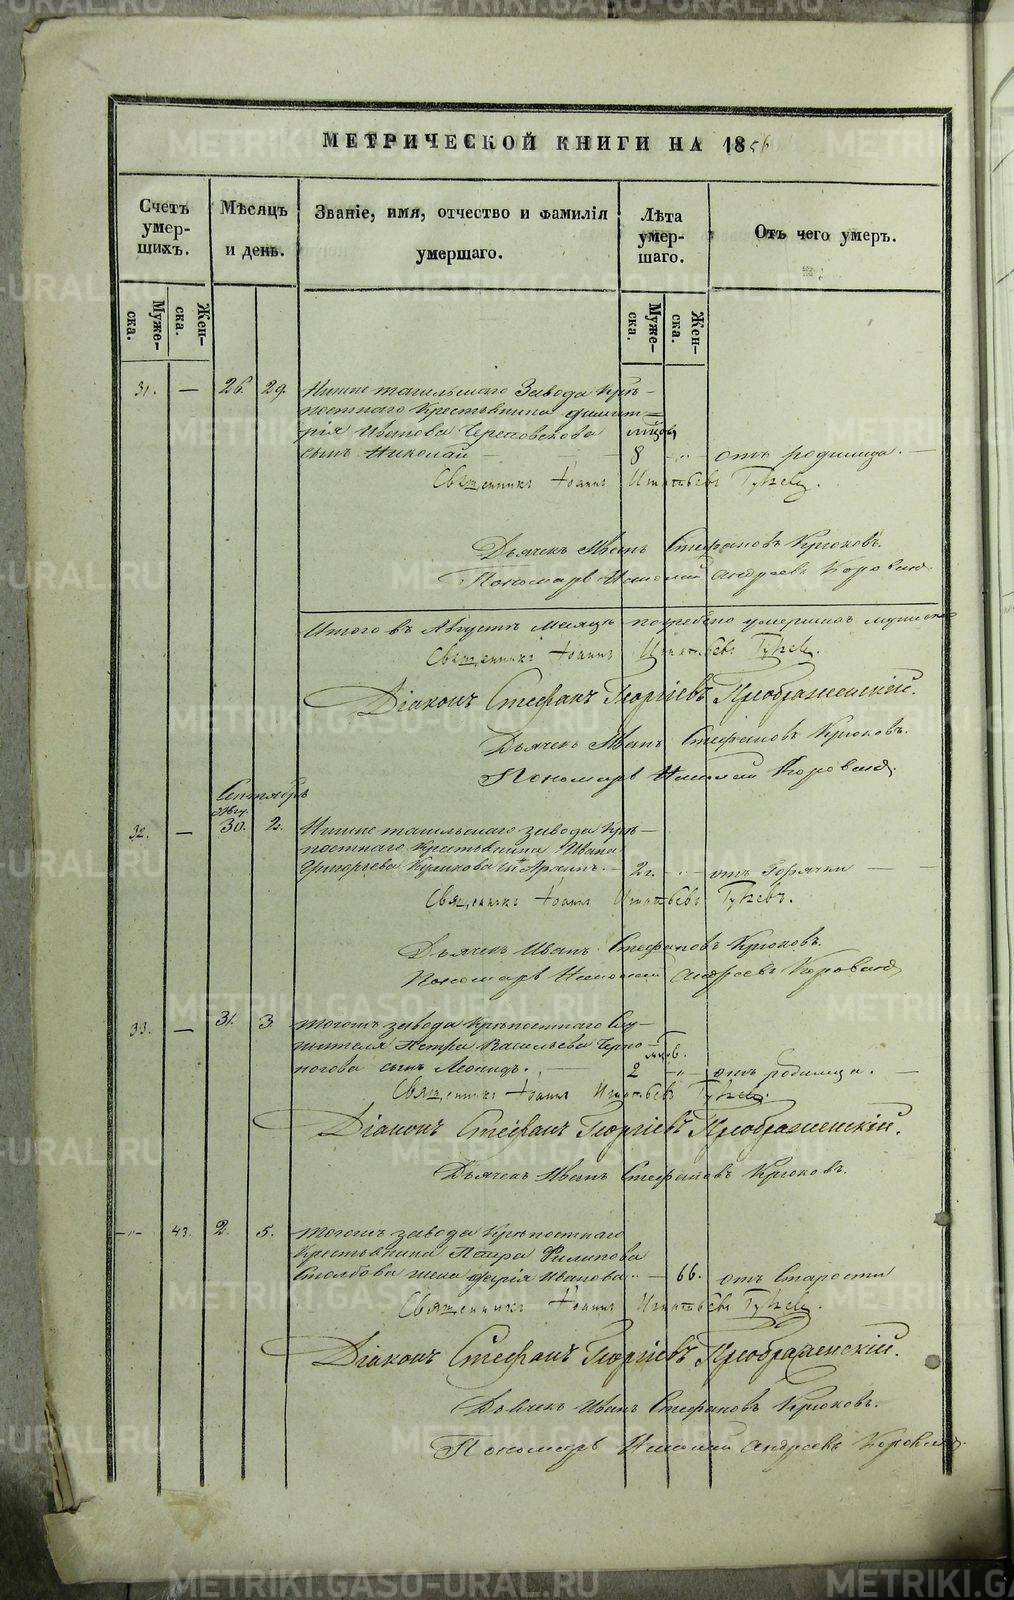 МЕТРИЧЕСКОЙ КНИГИ НА 1856
Счетъ умер-шихъ.
Мѣсяцъ и день.
Званіе, имя, отчество и фамилія умершаго.
Лѣта умер-шаго.
Отъ чего умеръ.
Муже-ска.
Жен-ска.
Муже-ска.
Жен-ска.
31. — 26. 29. Нижне тагильскаго Завода Крѣ-
постнаго Крестьянина Димит-
рія Иванова
сынъ Николай — 8 „ отъ родимца. —
Священникъ Іоаннъ Игнатьевъ
Дьячекъ Иванъ Стефановъ Крюковъ.
Пономарь Николай Андреевъ
Итого въ Августѣ месяцѣ погребено умершихъ
Священникъ Іоаннъ Игнатьевъ
Діаконъ Стефанъ Георгіевъ Преображенскій.
Дьячекъ Иванъ Стефановъ Крюковъ.
Пономарь Николай
Сентябрь
Авгу.
32. — 30. 2. Нижне тагильскаго завода Крѣ-
постнаго Крестьянина Ивана
Григорьева Куликова — 2 г. „ отъ Горячки —
Священникъ Іоаннъ Игнатьевъ
Дьячекъ Иванъ Стефановъ Крюковъ.
Пономарь Николай Андреевъ
33. — 31. 3. тогожъ завода Крѣпостнаго Слу-
жителя Петра Васильева Черно-
ногова сынъ Леонидъ. — 2 „ отъ родимца. —
Священникъ Іоаннъ Игнатьевъ
Діаконъ Стефанъ Георгіевъ Преображенскій.
Дьячекъ Иванъ Стефановъ Крюковъ.
„ 43. 2. 5. тогожъ завода Крѣпостнаго
Крестьянина Петра Филипова
Столбова жена Дарія Иванова. — 66. отъ Старости
Священникъ Іоаннъ Игнатьевъ
Діаконъ Стефанъ Георгіевъ Преображенскій.
Дьячекъ Иванъ Стефановъ Крюковъ.
Пономарь Николай Андреевъ
METRIKI.GASO-URAL.RU